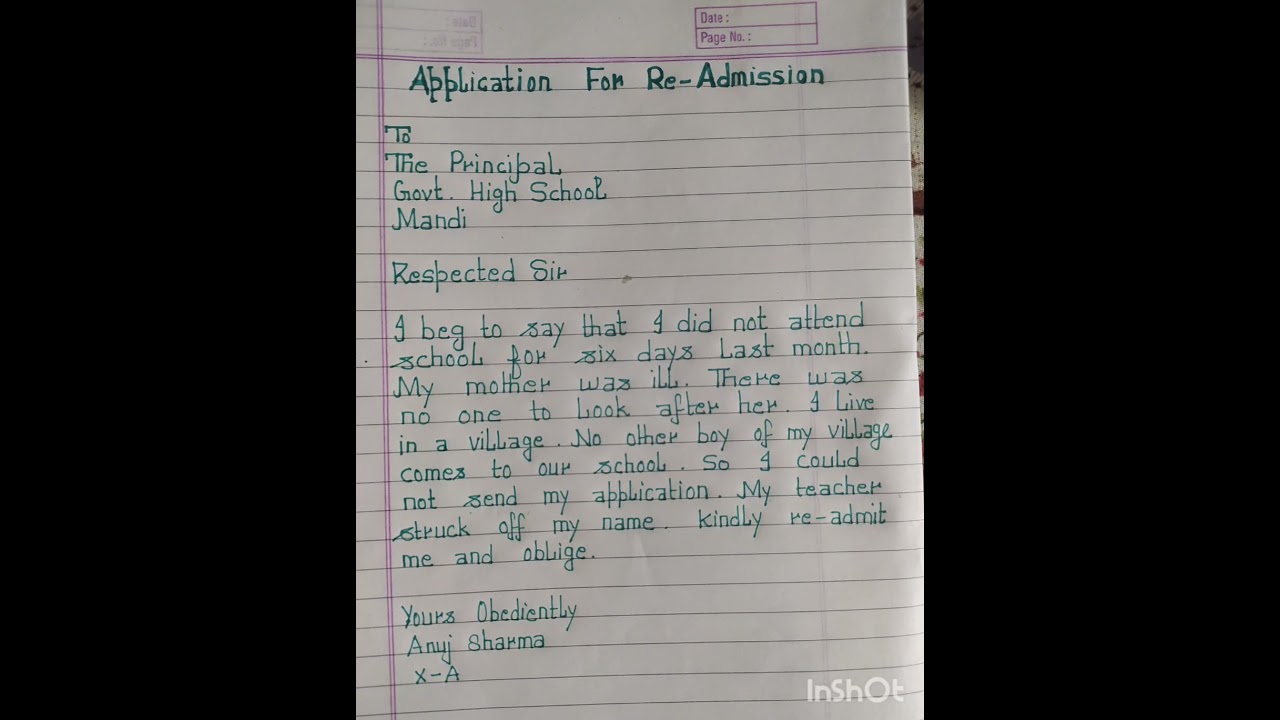 Date :
Page No. :
Application For Re-Admission
To
The Principal
Govt. High School
Mandi
Respected Sir
I beg to say that I did not attend
school for six days last month.
My mother was ill. There was
no one to look after her. I live
in a village. No other boy of my village
comes to our school. So I could
not send my application. My teacher
struck off my name. Kindly re-admit
me and oblige.
Yours Obediently
Anuj Sharma
X-A
InShOt